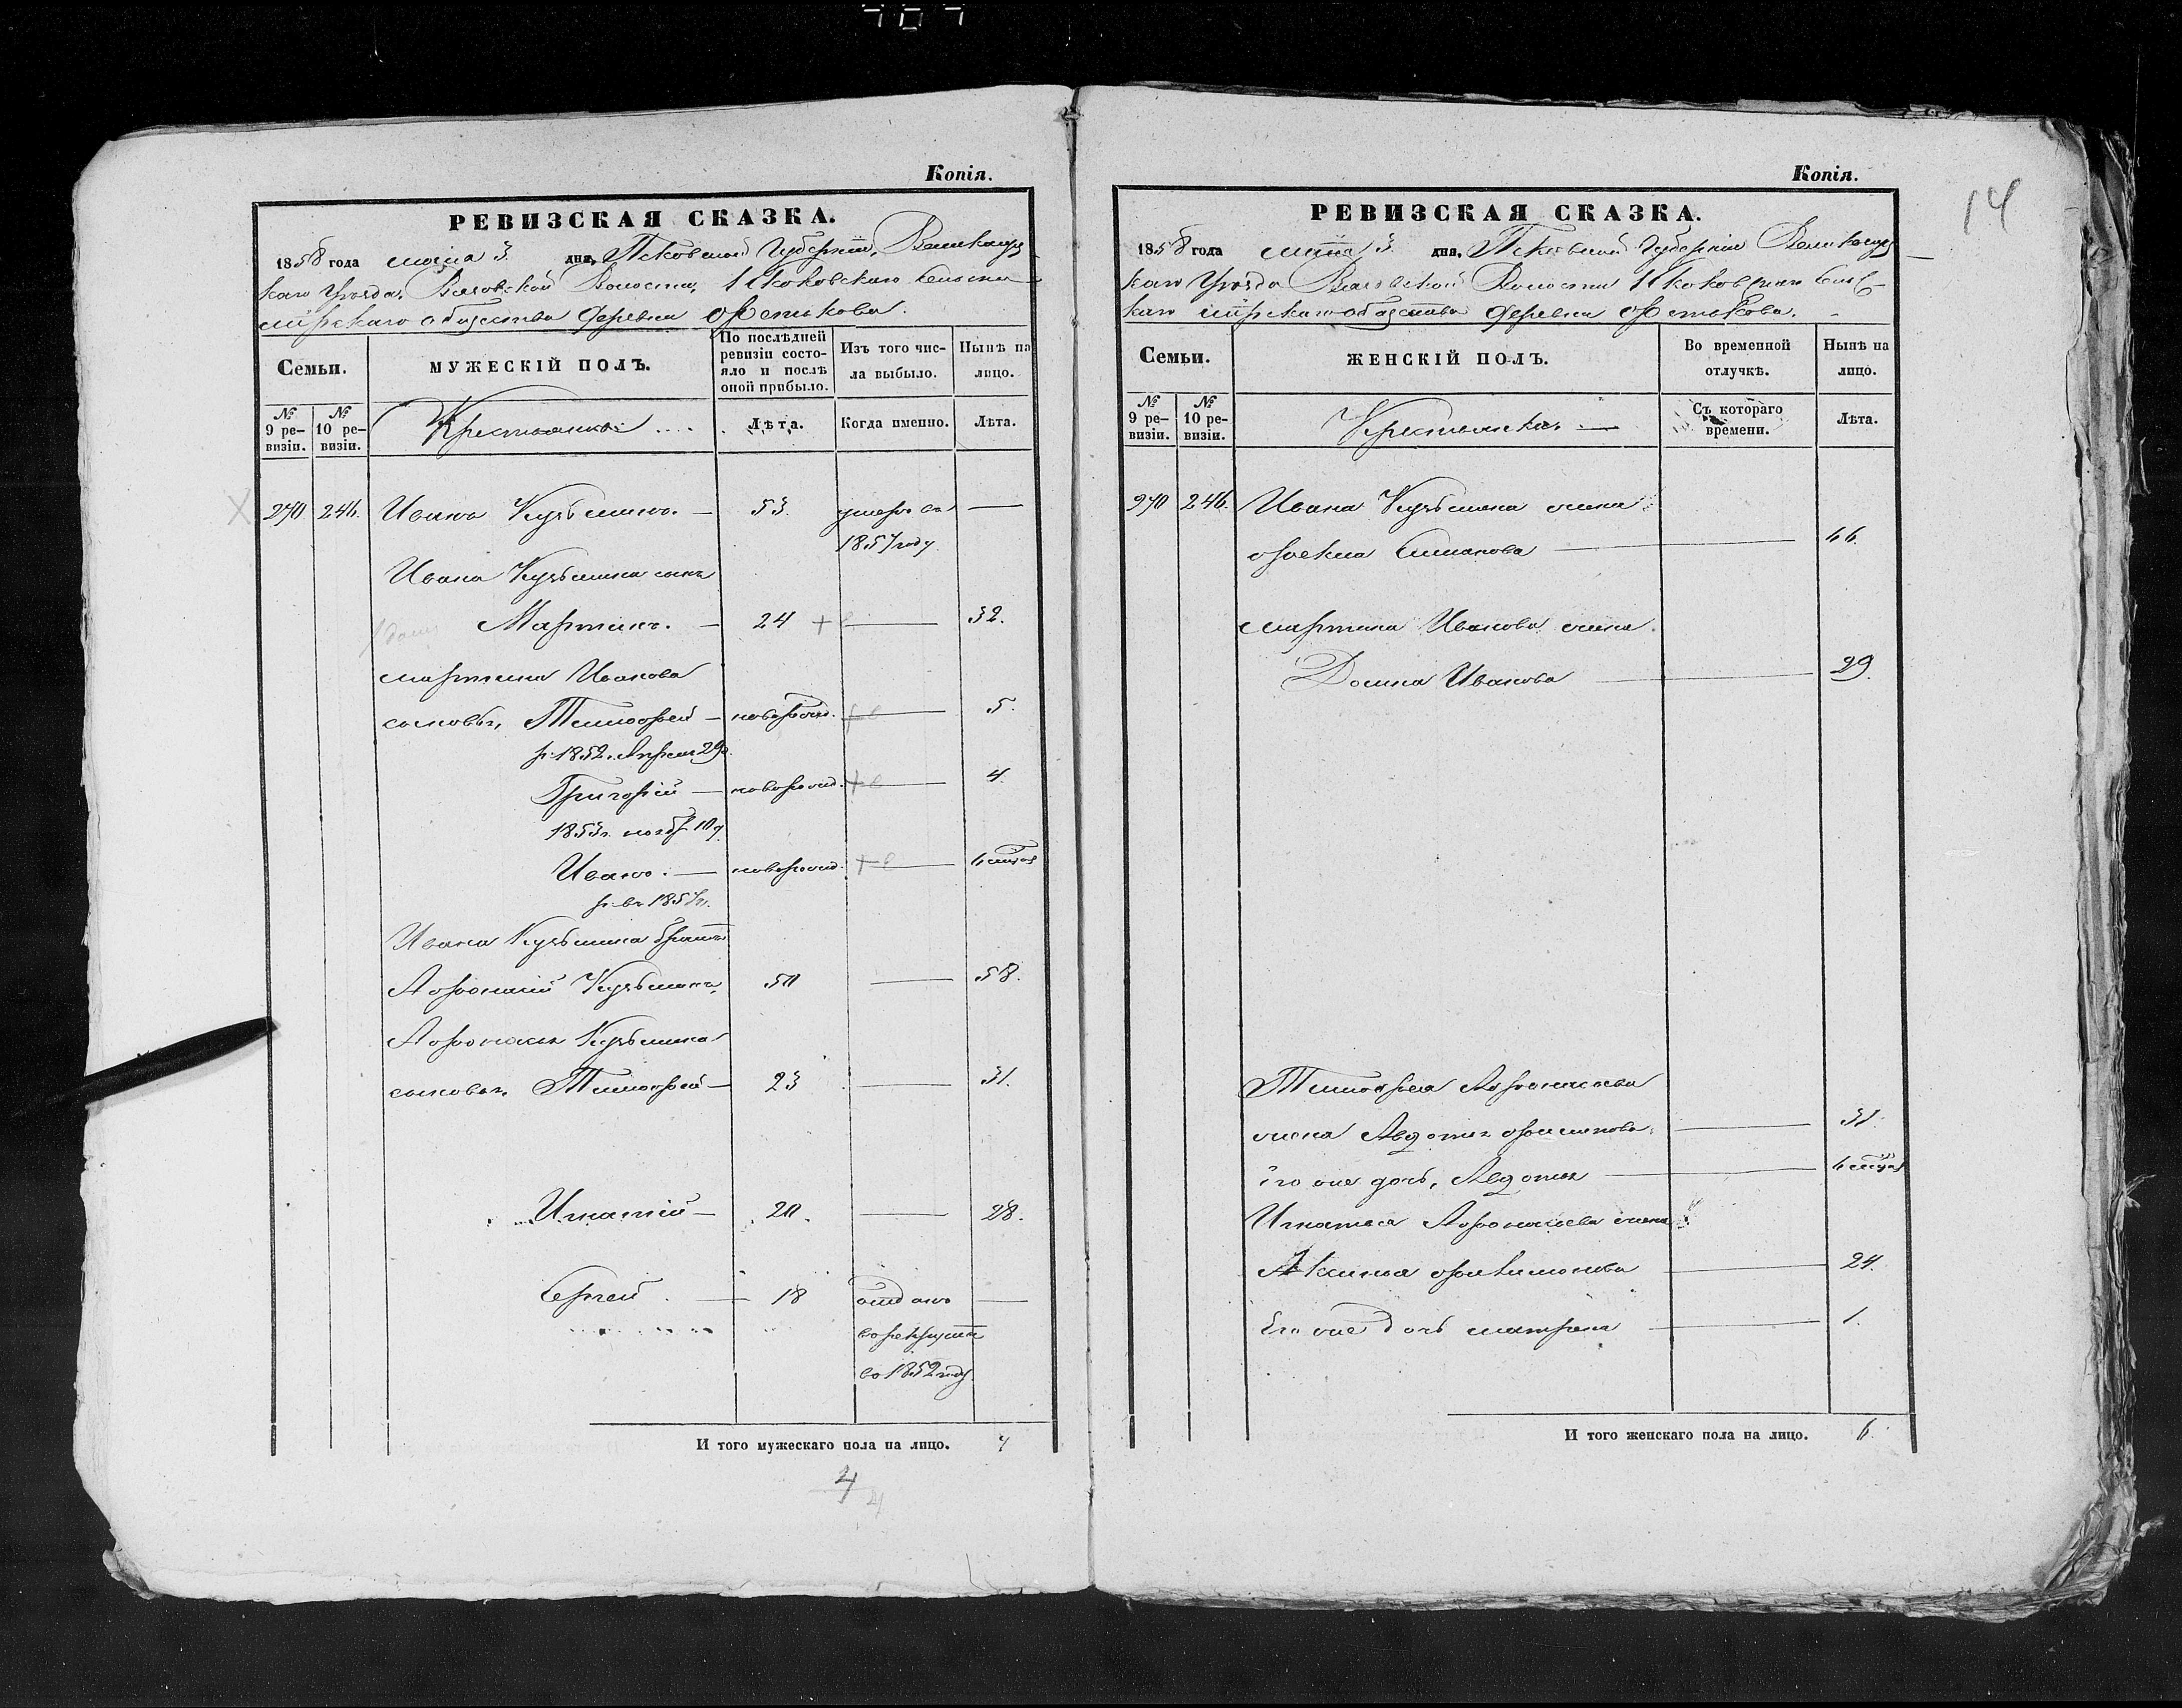 707
Копія.
РЕВИЗСКАЯ СКАЗКА.
1858 года маія 3 дня, Псковской Губерніи, Великолуц
каго Уѣзда, Волости,
мірскаго общества деревни Фетькова.
Семьи.
МУЖЕСКІЙ ПОЛЪ.
По послѣдней ревизіи состо-
яло и послѣ оной прибыло.
Изъ того чис-
ла выбыло.
Нынѣ на
лицо.
№ 9 ре-
визіи.
№ 10 ре-
визіи.
Крестьяне
Лѣта.
Когда именно.
Лѣта.
270 246. Иванъ Кузьминъ. — 53. умеръ въ —
1857 году
Ивана Кузьмина сынъ
Мартинъ. — 24 — 32.
Мартина Иванова
сыновья, Тимофей — новорожд. — 5.
р. 1852 г. Апреля 29 д.
Григорій — новорожд. — 4.
1853 г. нояб. 10 д.
Иванъ. — новорожд. —
р. въ 1857 г.
Ивана Кузьмина братъ
Афонасій Кузьминъ, 50 — 58.
Афонасья Кузьмина
сыновья, Тимофей — 23 — 31.
Игнатій — 20. — 28.
Сергей. — 18 отданъ —
въ рекруты
въ 1852 году.
И того мужескаго пола на лицо. 7
4
4
Копія.
14
РЕВИЗСКАЯ СКАЗКА.
1858 года маія 3 дня, Псковской Губерніи Великолуц
каго Уѣзда Волости
каго мірскаго общества деревни Фетькова.
Семьи.
ЖЕНСКІЙ ПОЛЪ.
Во временной
отлучкѣ.
Нынѣ на
лицо.
№ 9 ре-
визіи.
№ 10 ре-
визіи.
Крестьянки
Съ котораго
времени.
Лѣта.
270 246. Ивана Кузьмина жена
Фекла — 66.
Мартина Иванова жена
Домна Иванова — 29.
Тимофея Афонасьева
жена Авдотья — 31.
Его же дочь, Авдотья —
Игнатья Афонасьева жена
Аксинья — 24.
Его же дочь Матрена — 1.
И того женскаго пола на лицо. 6.